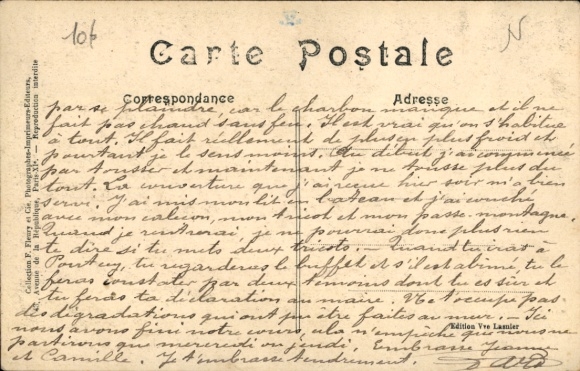 10f
N
Carte Postale
Correspondance
Adresse
Collection F. Fleury et Cie, Photographes-Imprimeurs-Editeurs,
Avenue de la République, Paris-XIe. — Reproduction interdite
par se plaindre, car le charbon manque et il ne
fait pas chaud sans feu. Il est vrai qu'on s'habitue
à tout. Il fait réellement de plus en plus froid et
pourtant je le sens moins. Au début j'ai commencé
par tousser et maintenant je ne tousse plus du
tout. La couverture que j'ai reçue hier soir m'a bien
servi. J'ai mis mon lit en bateau et j'ai couché
avec mon caleçon, mon tricot et mon passe-montagne.
Quand je rentrerai, je ne pourrai donc plus rien
te dire si tu mets deux tricots. — Quand tu iras à
tu regarderas le buffet et s'il est abimé, tu le
feras constater par deux témoins dont tu es sûr et
tu feras ta déclaration au maire. Ne t'occupe pas
des dégradations qui ont pu être faites au mur. — Ici
nous avons fini notre cours, cela n'empêche que nous ne
partirons que mercredi ou jeudi. Embrasse Jeanne
et Camille. Je t'embrasse tendrement.
Edition Vve Lasnier